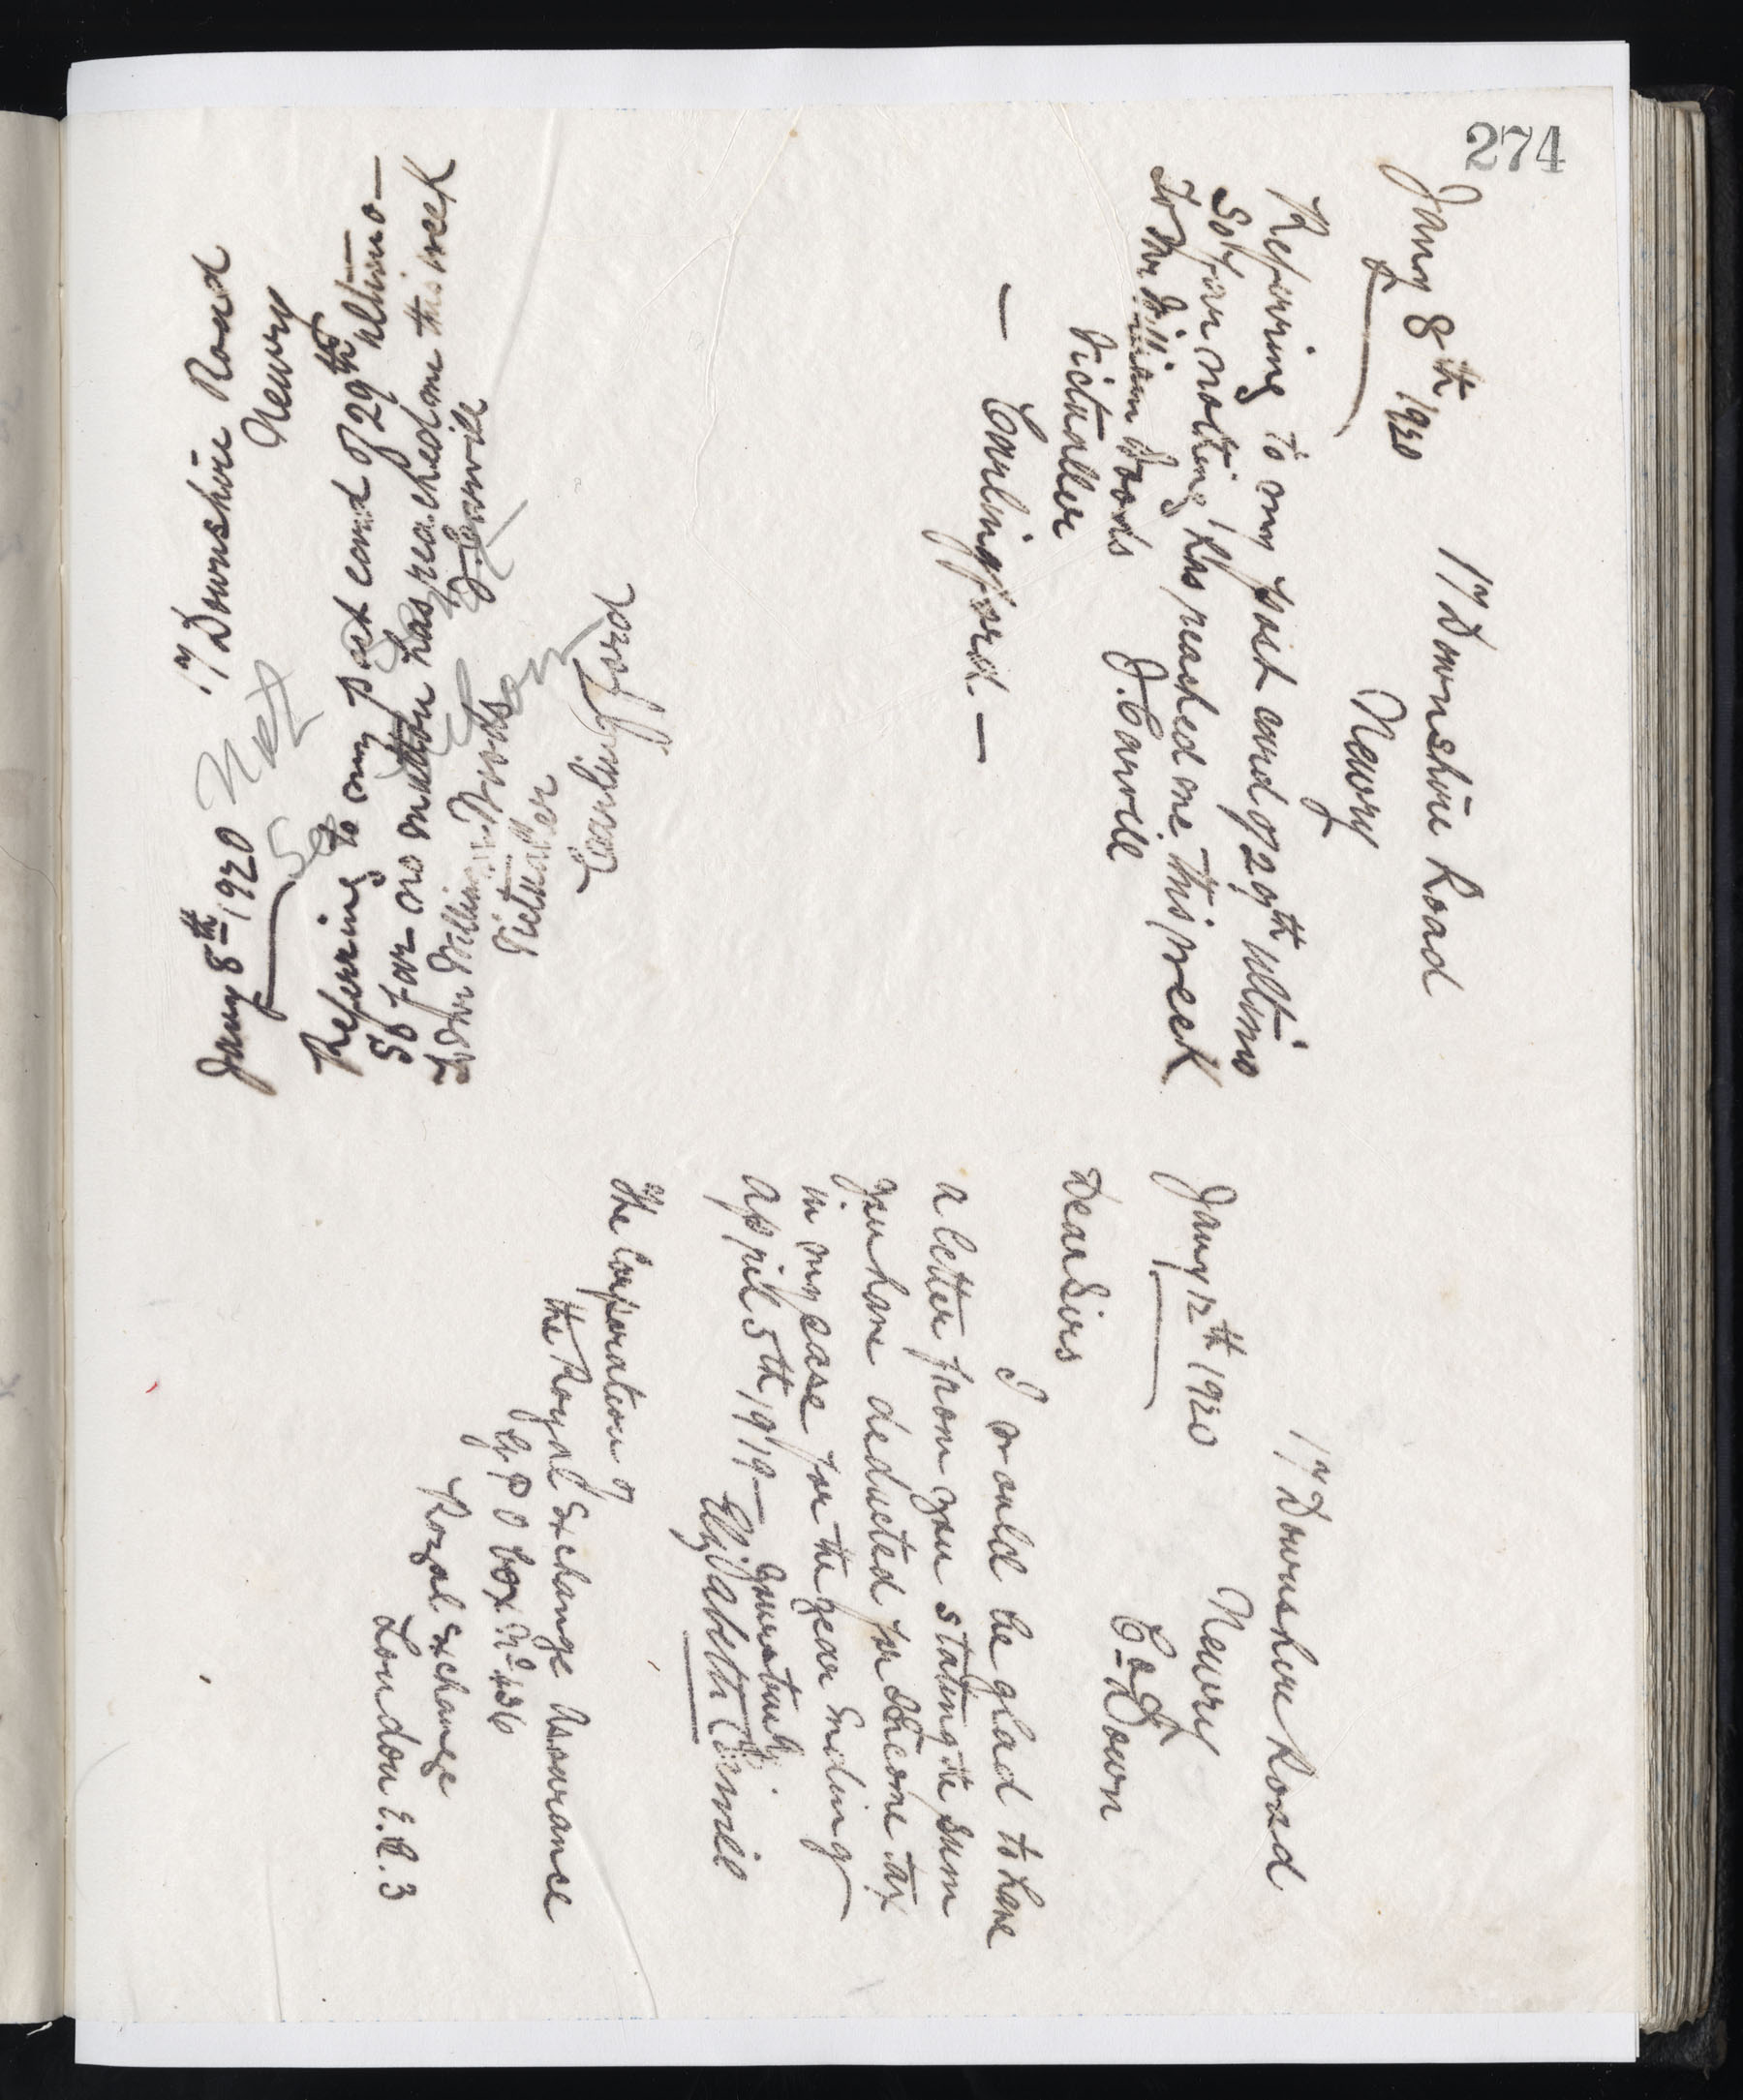 274
17 Downshire Road
Newry
Jany 8th 1920
Referring to my post card of 29th ultimo
So far nothing has reached me this week
J. Carvill
To Mr William Woods
Victualler
— Carlingford. —
17 Downshire Road
Newry
Jany 8th 1920
Not
Referring to my post card of 29th ultimo —
So far no mutton has reached me this week
J. Carvill
To Mr William Woods
Victualler
Carlingford
17 Downshire Road
Newry
Co Down
Jany 12th 1920
Dear Sirs
I would be glad to have
a letter from you stating the sum
you have deducted for Income tax
in my case for the year Ending
April 5th 1919 —
Yours truly
Elizabeth Carvill
The Corporation of
the Royal Exchange Assurance
G P O box No 436
Royal Exchange
London E.C. 3